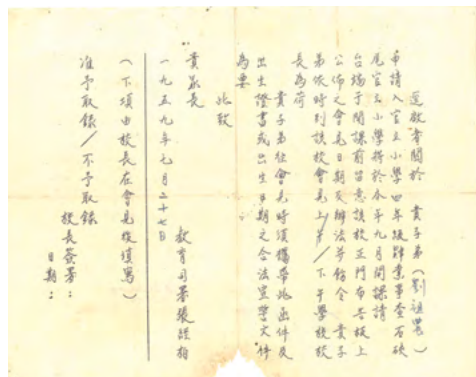 逕啟者關於　貴子弟（劉祖農）
申請入官立小學四年級肄業事查石硤
尾官立小學將於本年九月間課請
台端于開課前留意該校正門布告板上
公佈之會見日期及辦法并飭令　貴子
弟依時到該校會見上/下午學校校
長為荷
貴子弟往會見時須攜帶此函件及
出生證書或出生日期之合法宣誓文件
為要
此致
貴家長
教育司署
一九五九年七月二十七日
（下項由校長在會見後填寫）
准予取錄/不予取錄
校長簽署：
日期：